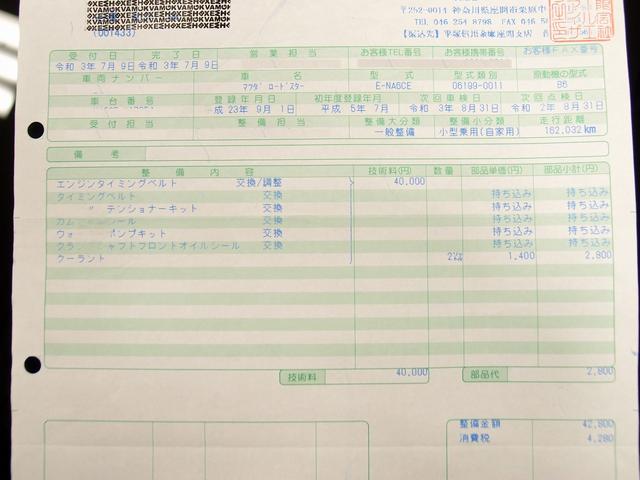 (001433)
〒252-0014 神奈川県座間市栗原中
TEL 046 254 8798 FAX 046
【振込先】平塚信用金庫座間支店
受付日 完了日 営業担当 お客様TEL番号 お客様携帯番号 お客様FAX番号
令和 3年 7月 9日 令和 3年 7月 9日
車両ナンバー 車名 型式 型式類別 原動機の型式
マツダ ロードスター E-NA6CE 06199-0011 B6
車台番号 登録年月日 初年度登録年月 次回車検日 次回点検日
成 23年 9月 1日 平成 5年 7月 令和 3年 8月31日 令和 2年 8月31日
受付担当 整備担当 整備大分類 整備小分類 走行距離
一般整備 小型乗用(自家用) 162,032km
備考
整備内容 技術料(円) 数量 部品単価(円) 部品小計(円)
エンジンタイミングベルト 交換/調整 40,000
タイミングベルト 交換 持ち込み 持ち込み
〃 テンショナーキット 交換 持ち込み 持ち込み
シール 交換 持ち込み 持ち込み
ポンプキット 交換 持ち込み 持ち込み
シャフトフロントオイルシール 交換 持ち込み 持ち込み
クーラント 2㍑ 1,400 2,800
技術料 40,000 部品代 2,800
整備金額 42,800
消費税 4,280